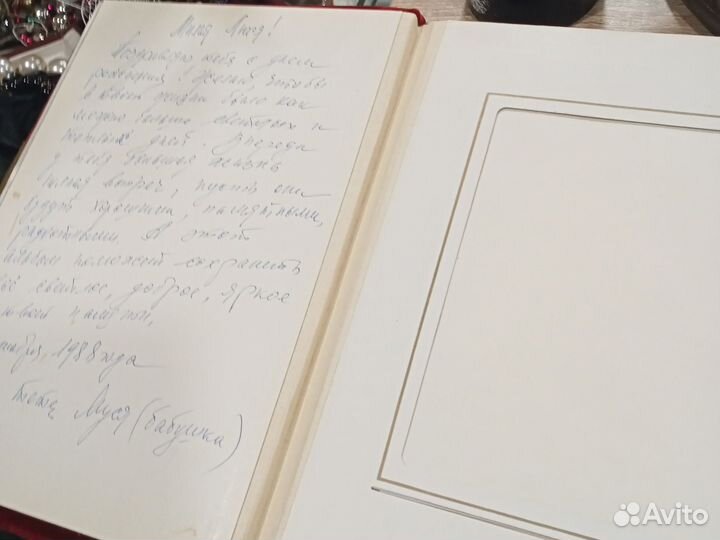 Милая Инга!
Поздравляю тебя с днем
рождения! Желаю, чтобы
в твоей жизни было как
можно больше светлых и
теплых дней. Впереди
у тебя большая жизнь
полная встреч, пусть они
будут хорошими, памятными,
радостными. А этот
альбом поможет сохранить
всё светлое, доброе, яркое
1988 года
Тетя Муся (бабушка)
Avito